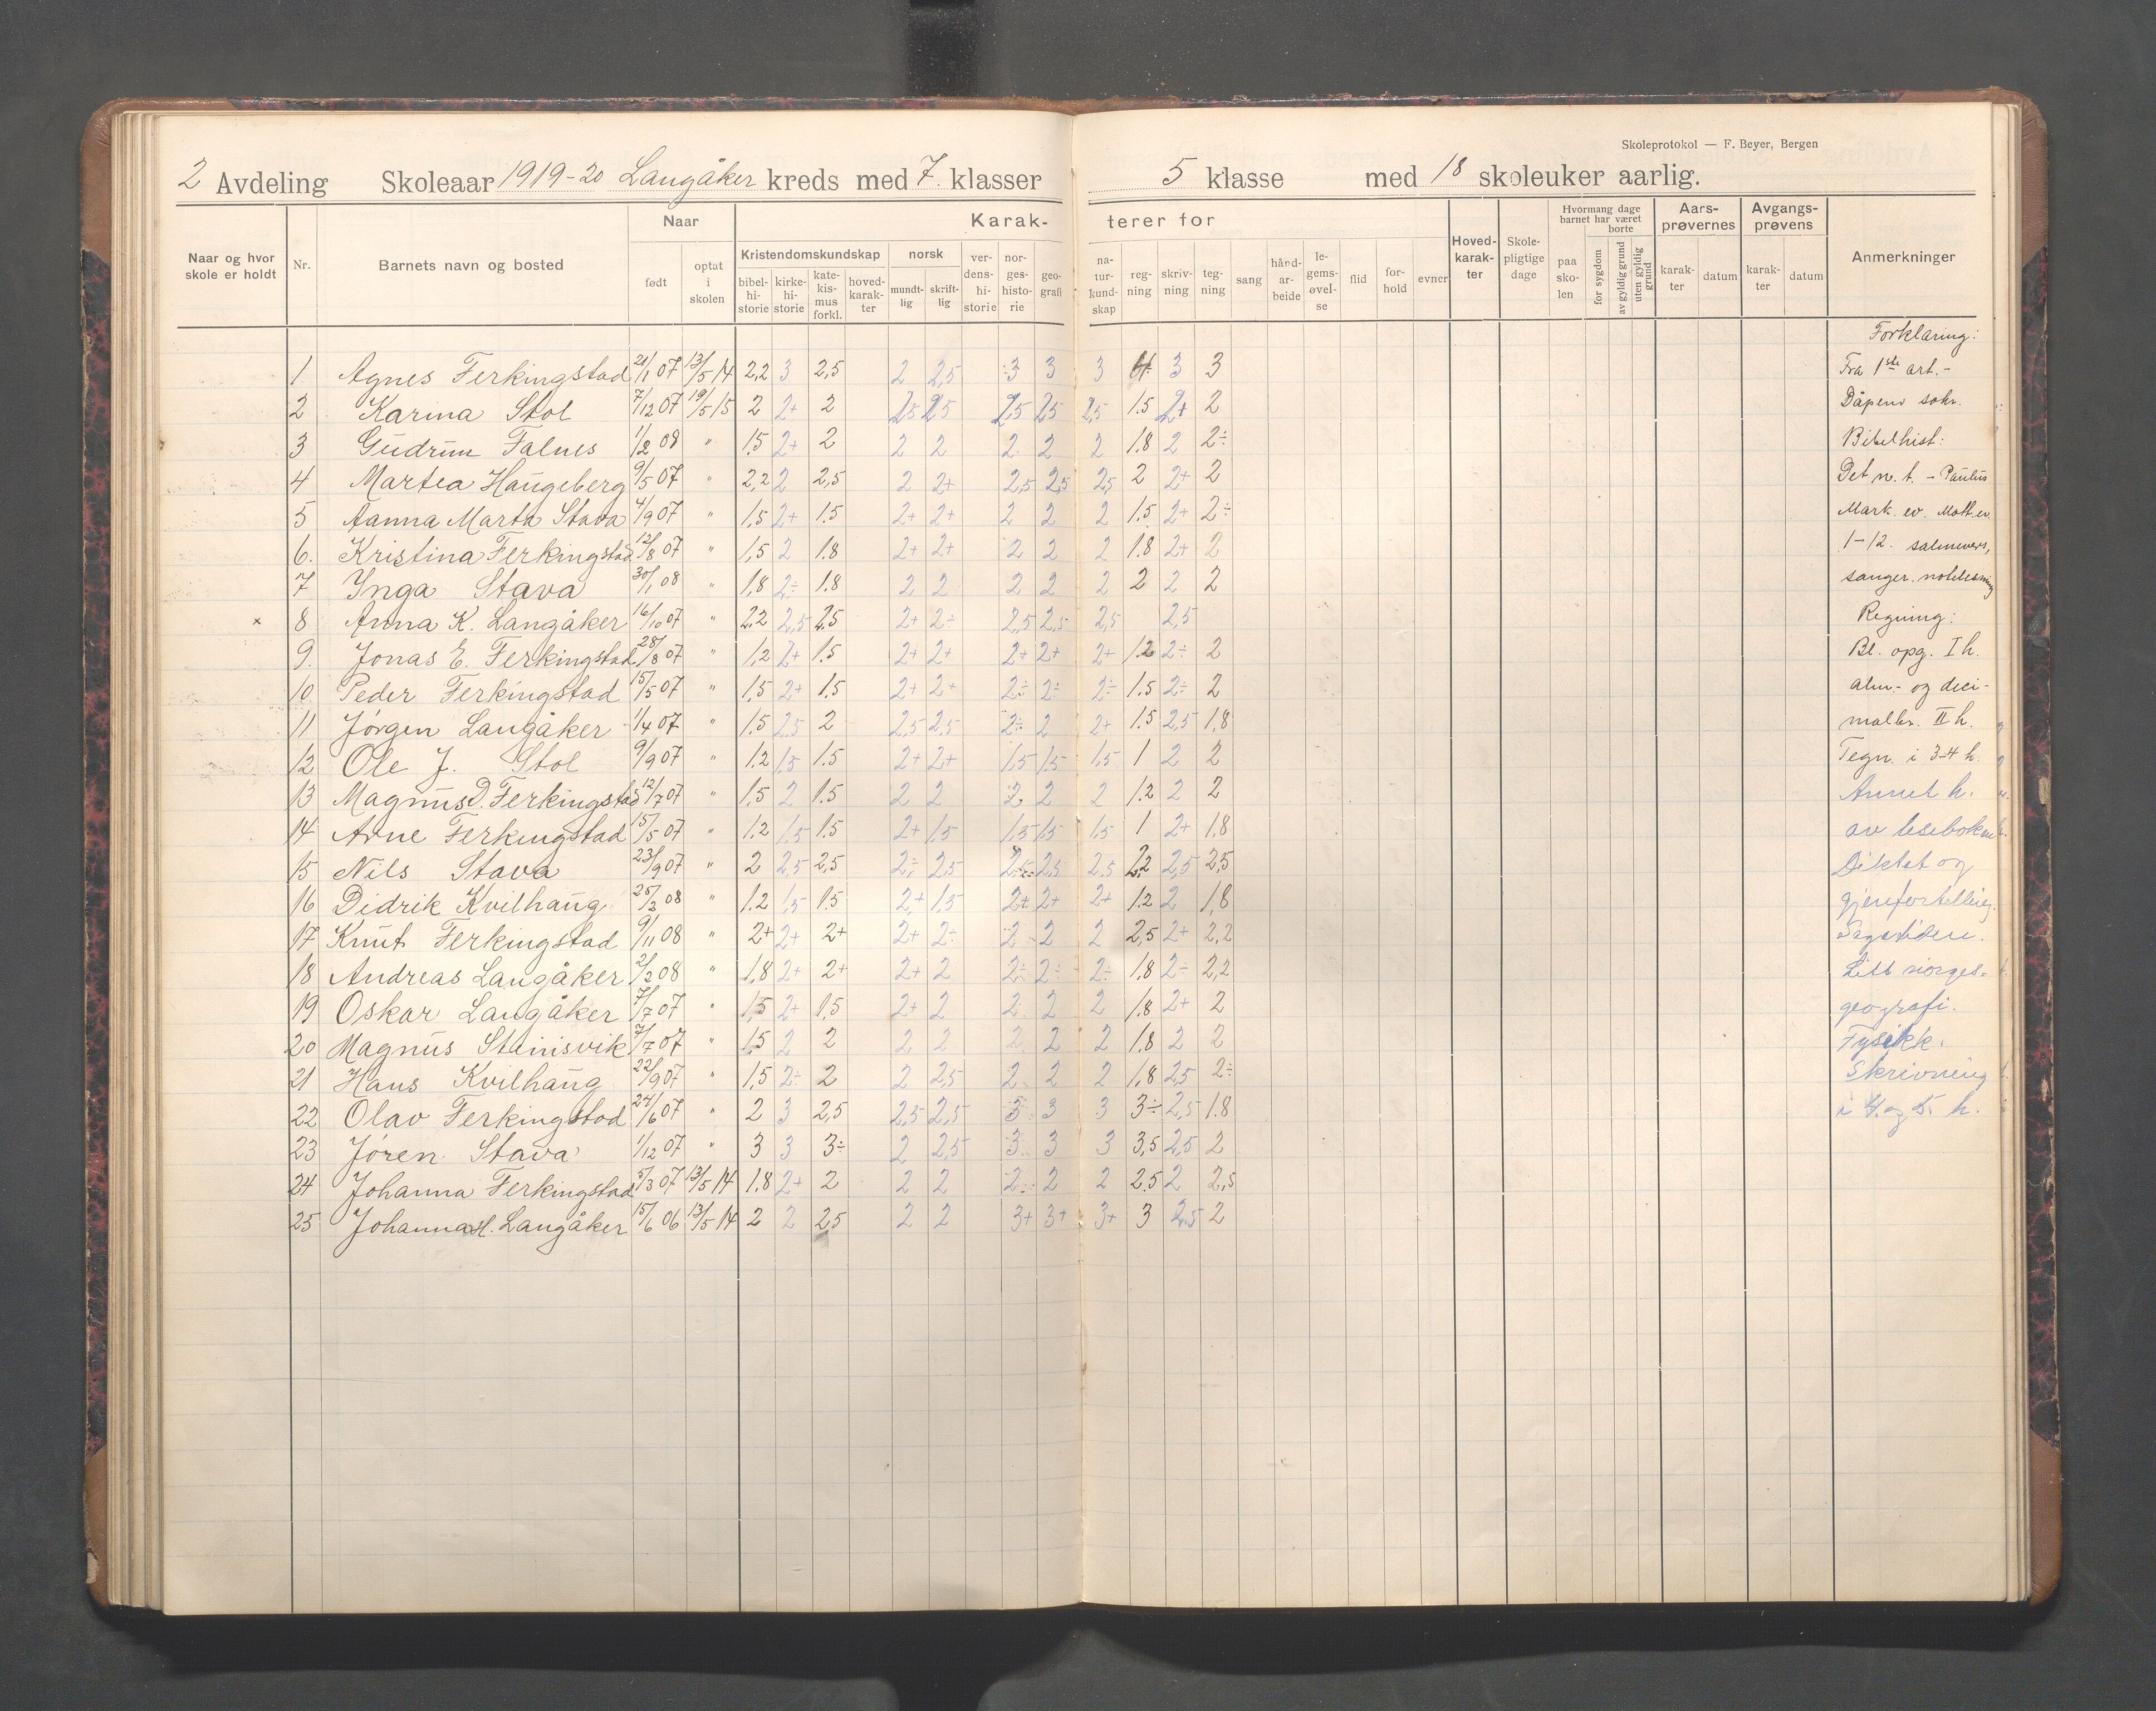 Skoleprotokol — F. Beyer, Bergen
2 Avdeling Skoleaar 1919-20 Langåker kreds med 7. klasser 5 klasse med 18 skoleuker aarlig.
Naar og hvor skole er holdt Nr. Barnets navn og bosted Naar født optat i skolen Karak- terer for Kristendomskundskap bibel-hi-storie kirke-hi-storie kate-kis-mus forkl. hoved-karak-ter norsk mundt-lig skrift-lig ver-dens-hi-storie nor-ges-histo-rie geo-grafi na-tur-kund-skap reg-ning skriv-ning teg-ning sang hånd-ar-beide le-gems-øvel-se flid for-hold evner Hoved-karak-ter Skole-pligtige dage Hvormang dage barnet har været borte paa sko-len for sygdom av gyldig grund uten gyldig grund Aars-prøvernes karak-ter datum Avgangs-prøvens karak-ter datum Anmerkninger
Forklaring:
1 Agnes Ferkingstad 21/1 07 13/5 14 2,2 3 2,5 2 2,5 3 3 3 4 3 3 Fra 1ste art.-
2 Karina Stol 7/12 07 19/5 15 2 2+ 2 2,5 2,5 2,5 2,5 2,5 1.5 2+ 2 Dåpens sakr.
3 Gudrun Falnes 1/2 08 " 1.5 2+ 2 2 2 2 2 2 1.8 2 2÷ Bibelhist:
4 Martea Haugeberg 9/5 07 " 2,2 2 2,5 2 2+ 2,5 2,5 2,5 2 2+ 2 Det n. t. - Paulus
5 Aanna Marta Stava 4/9 07 " 1,5 2+ 1.5 2+ 2+ 2 2 2 1.5 2+ 2÷ Mark. ev. Matt. ev.
6. Kristina Ferkingstad 12/8 07 " 1,5 2 1.8 2+ 2+ 2 2 2 1.8 2+ 2 1-12. salmevers,
7 Ynga Stava 30/1 08 " 1,8 2÷ 1.8 2 2 2 2 2 2 2 2 sanger. notelesning
x 8 Anna K. Langåker 16/10 07 " 2,2 2,5 2,5 2+ 2÷ 2,5 2,5 2,5 2,5 Regning:
9. Jonas E. Ferkingstad 28/8 07 " 1,2 2+ 1.5 2+ 2+ 2+ 2+ 2+ 1.2 2÷ 2 Bl. opg. I h.
10. Peder Ferkingstad 15/5 07 " 1.5 2+ 1,5 2+ 2+ 2÷ 2÷ 2÷ 1.5 2÷ 2 alm.- og deci-
11 Jørgen Langåker 1/4 07 " 1.5 2.5 2 2,5 2,5 2÷ 2 2+ 1.5 2,5 1,8 malbr. II h.
12 Ole J. Stol 9/9 07 " 1.2 1,5 1.5 2+ 2+ 1,5 1,5 1,5 1 2 2 Tegn. i 3-4 h.
13 Magnus D. Ferkingstad 12/7 07 " 1,5 2 1.5 2 2 2 2 2 1.2 2 2 Annet h.
14 Arne Ferkingstad 15/5 07 " 1.2 1,5 1.5 2+ 1,5 1,5 1,5 1,5 1 2+ 1.8 av leseboken
15 Nils Stava 23/9 07 " 2 2,5 2,5 2÷ 2,5 2,5 2,5 2.5 2,2 2,5 2,5 Diktat og
16 Didrik Kvilhaug 25/2 08 " 1.2 1,5 1.5 2+ 1,5 2+ 2+ 2+ 1.2 2 1,8 gjenfortelling.
17 Knut Ferkingstad 9/11 08 " 2+ 2+ 2+ 2+ 2÷ 2 2 2 2,5 2+ 2,2 Sagatiden.
18 Andreas Langåker 2/2 08 " 1,8 2+ 2+ 2+ 2 2÷ 2÷ 2÷ 1,8 2÷ 2,2 Litt norges-
19 Oskar Langåker 7/7 07 " 1,5 2+ 1,5 2+ 2 2 2 2 1.8 2+ 2 geografi.
20 Magnus Stainisvik 7/7 07 " 1,5 2 2 2 2 2 2 2 1,8 2 2 Fysikk.
21 Hans Kvilhaug 22/9 07 " 1,5 2÷ 2 2 2,5 2 2 2 1,8 2,5 2÷ Skrivning
22 Olav Ferkingstad 24/6 07 " 2 3 2,5 2,5 2,5 3 3 3 3÷ 2,5 1.8 i 4. og 5. h.
23 Jøren Stava 1/12 07 " 3 3 3÷ 2 2,5 3 3 3 3,5 2,5 2
24 Johanna Ferkingstad 5/3 07 13/5 14 1.8 2+ 2 2 2 2 2 2 2.5 2 2,5
25 Johanna M. Langåker 15/6 06 13/5 14 2 2 2,5 2 2 3+ 3+ 3+ 3 2,5 2